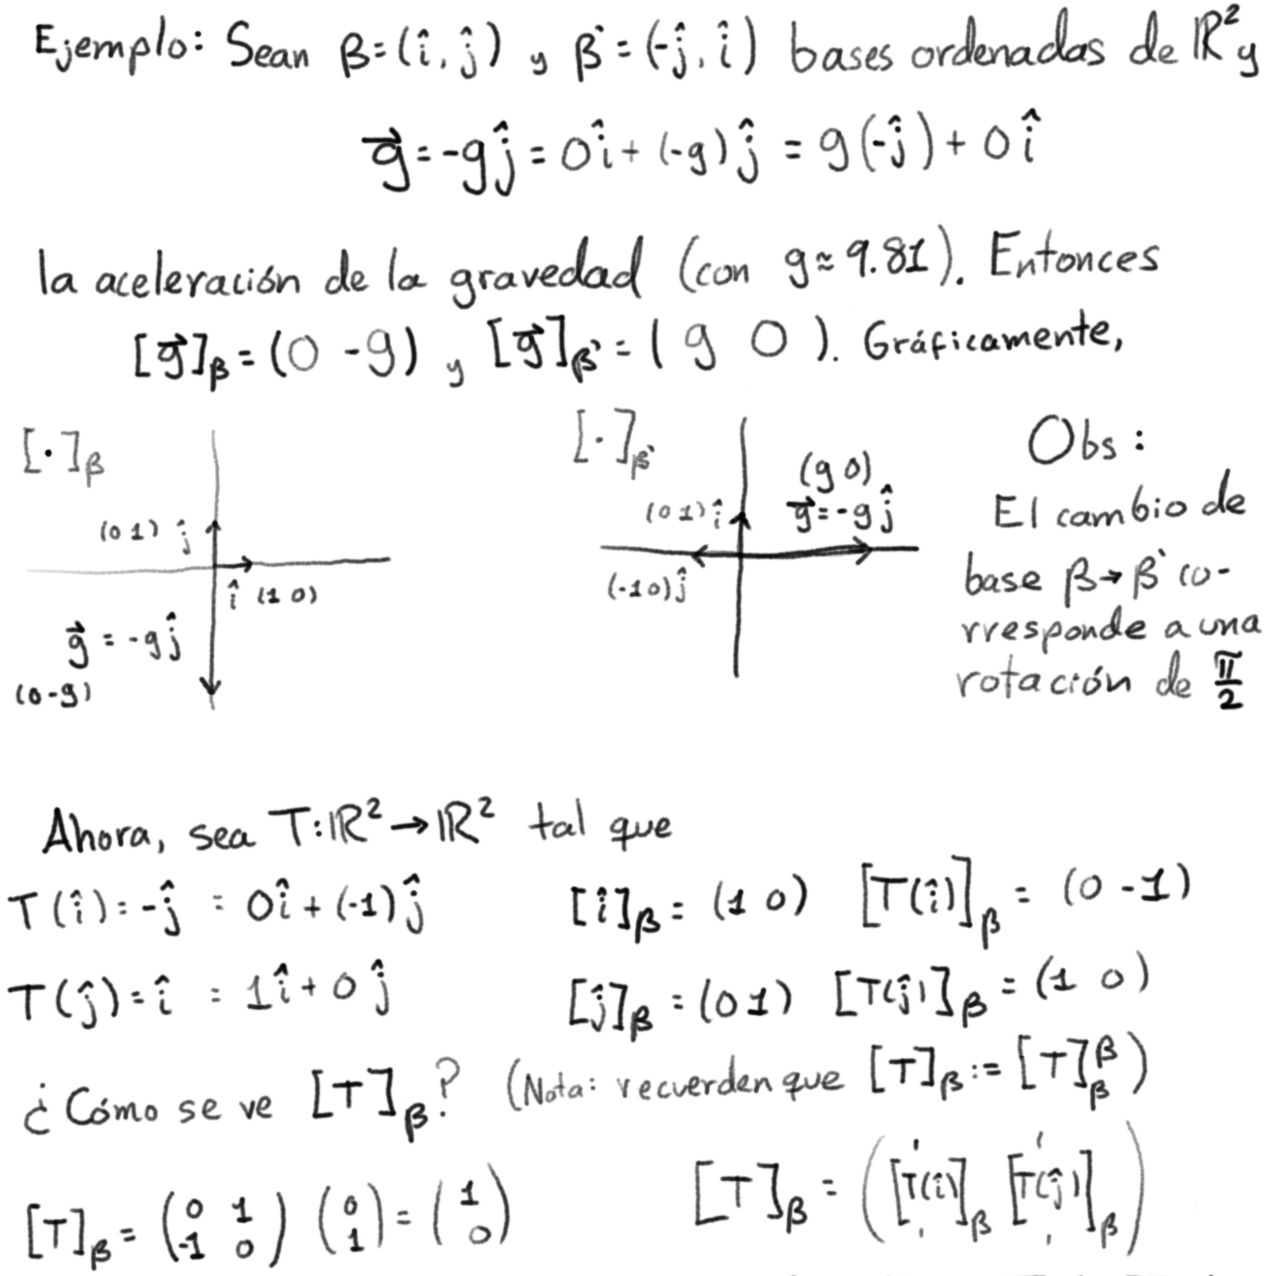 Ejemplo: Sean β=(î, ĵ) y β'=(-ĵ, î) bases ordenadas de ℝ² y
g⃗=-gĵ=0î+(-g)ĵ=g(-ĵ)+0î
la aceleración de la gravedad (con g≈9.81). Entonces
[g⃗]β=(0 -g) y [g⃗]β'=(g 0). Gráficamente,
[·]β
(0 1) ĵ
î (1 0)
g⃗=-gĵ
(0 -g)
[·]β'
(g 0)
(0 1) î
g⃗=-gĵ
(-1 0) ĵ
Obs:
El cambio de
base β→β' co-
rresponde a una
rotación de π/2
Ahora, sea T:ℝ²→ℝ² tal que
T(î)=-ĵ = 0î+(-1)ĵ [î]β=(1 0) [T(î)]β=(0 -1)
T(ĵ)=î = 1î+0ĵ [ĵ]β=(0 1) [T(ĵ)]β=(1 0)
¿Cómo se ve [T]β? (Nota: recuerden que [T]β:=[T]β^β)
[T]β=(0 1; -1 0)(0; 1)=(1; 0) [T]β=([T(î)]β [T(ĵ)]β)